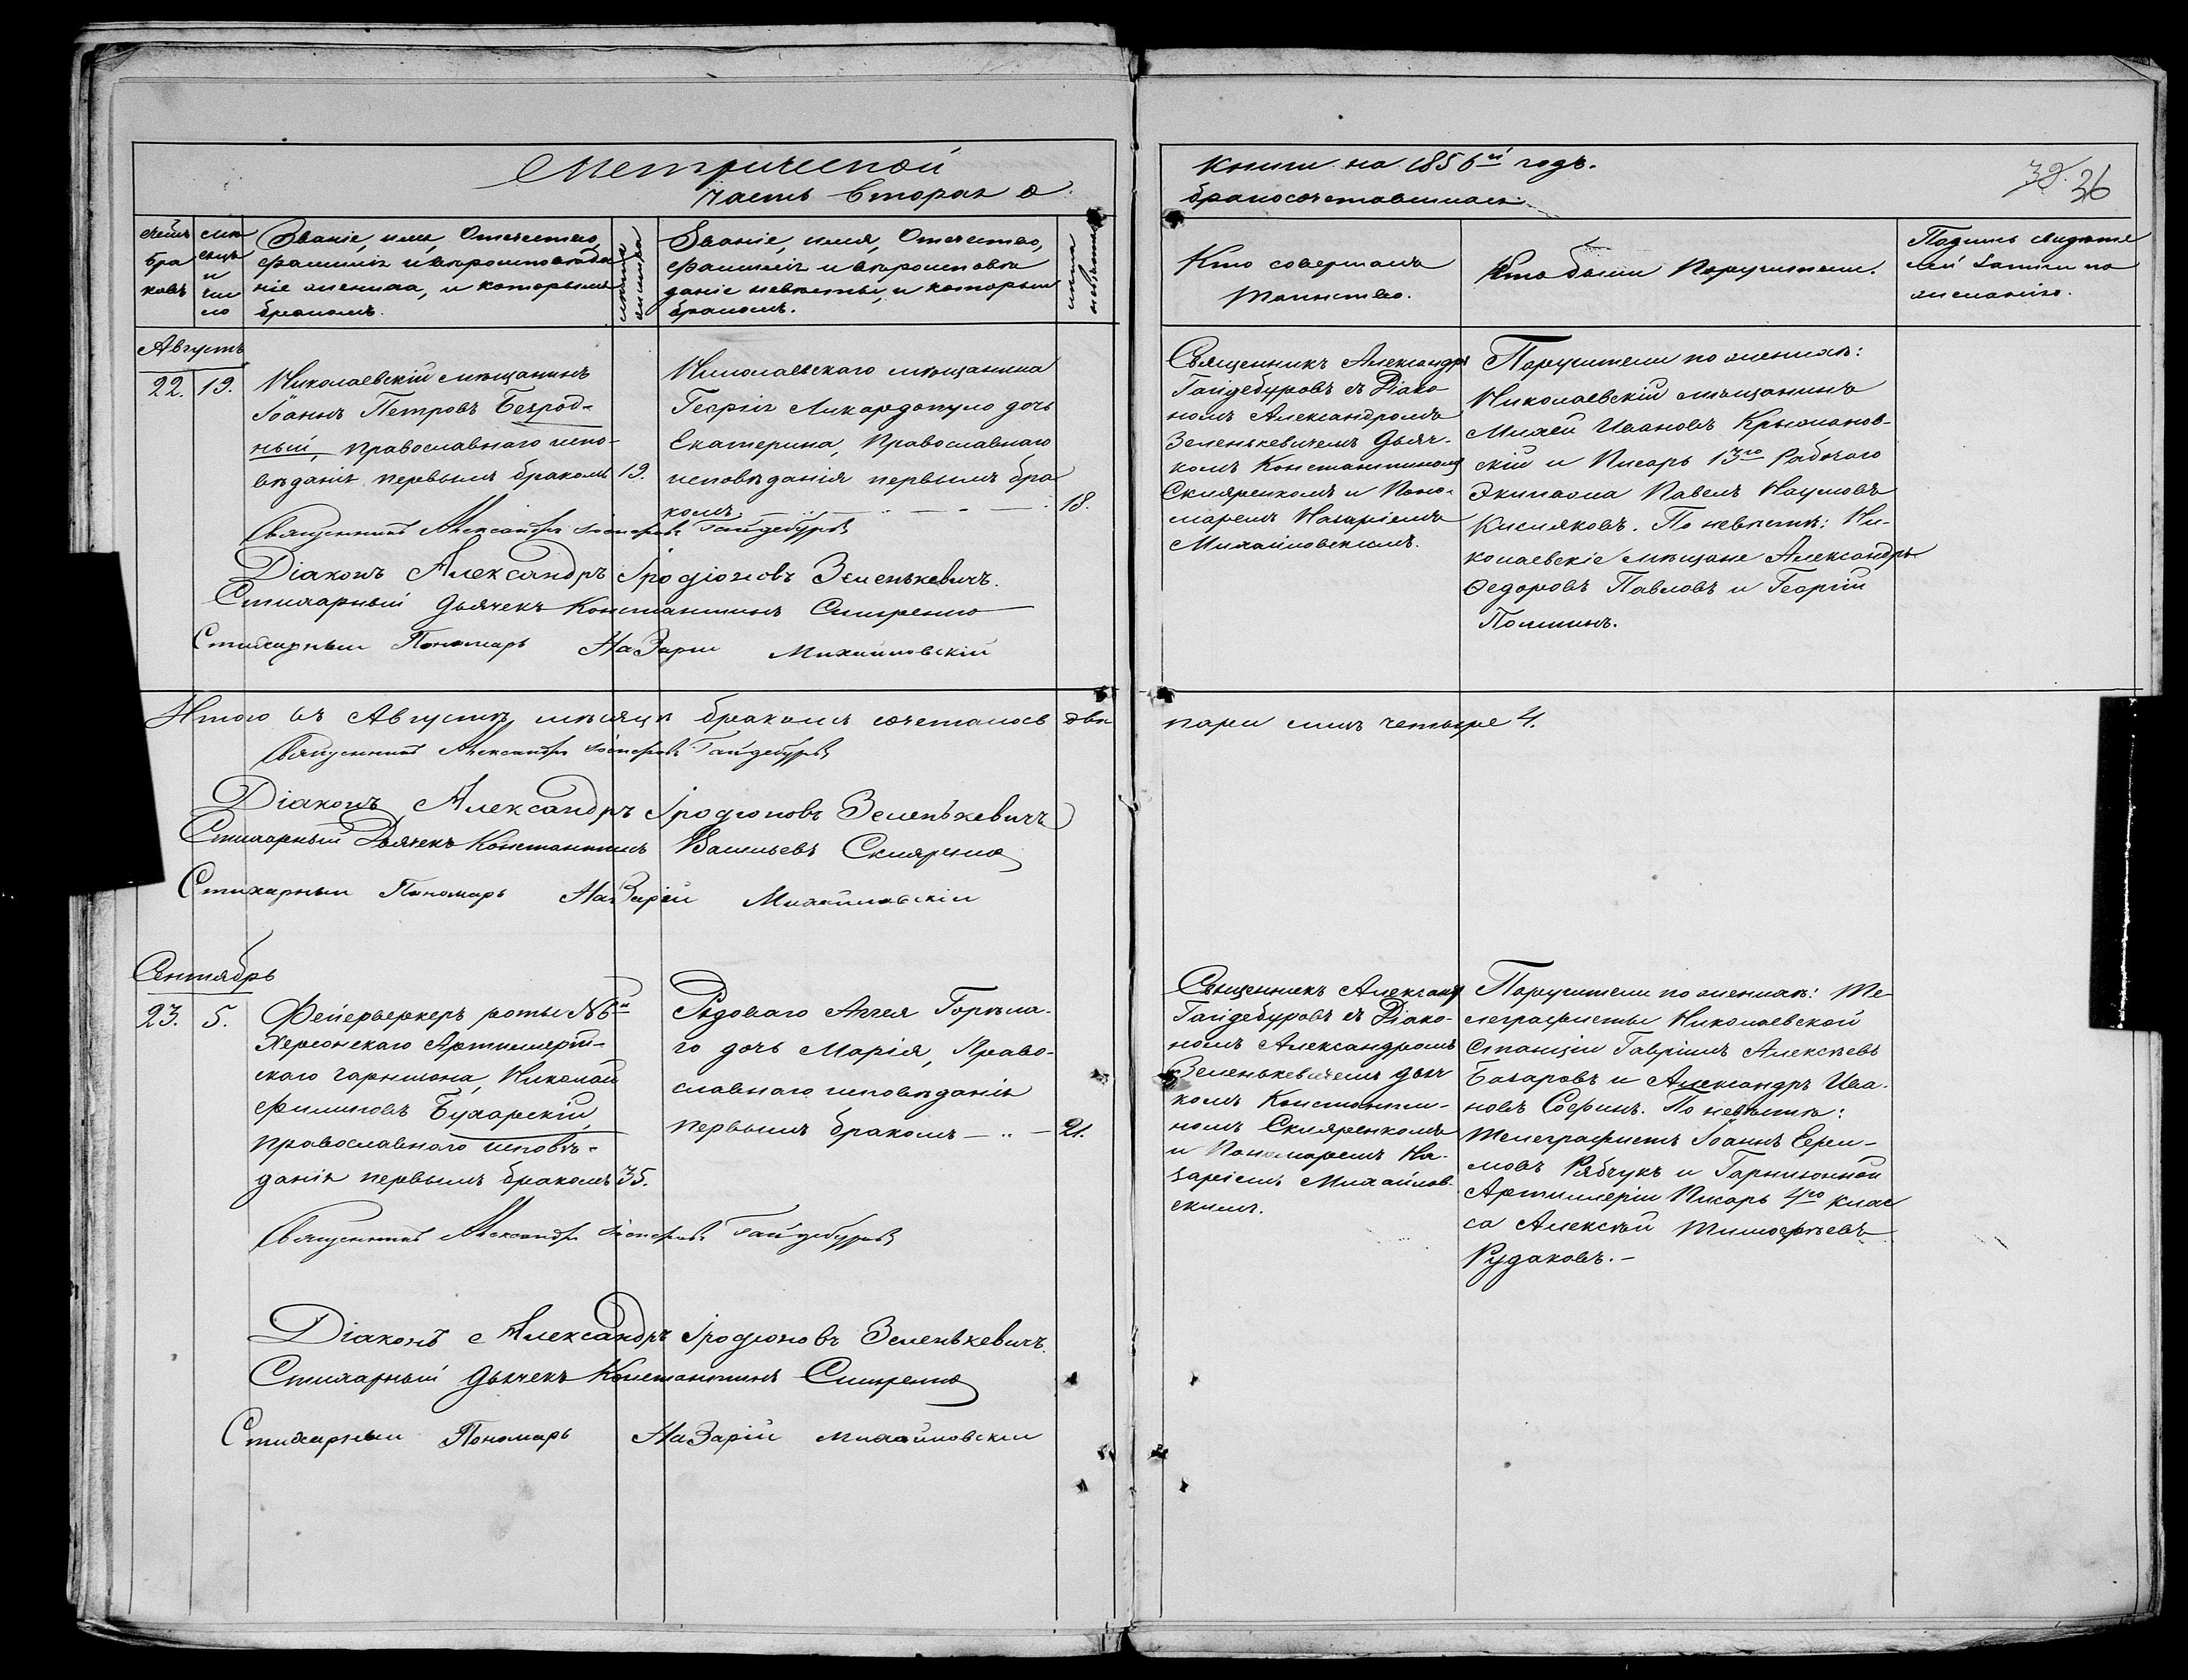 Метрической
часть вторая о
книги на 1856й годъ.
бракосочетавшихся.
32. 26
счетъ бра ковъ
мѣ сяцъ и чи сло
Званіе, имя, Отчество,
фамилія и вѣроисповѣда
ніе жениха, и которымъ
бракомъ.
лѣта жениха
Званіе, имя, Отчество,
фамилія и вѣроисповѣ
даніе невѣсты, и которым
бракомъ.
лѣта невѣсты
Кто совершалъ
таинство.
Кто были Поручители.
Подпись свидѣте
лей записи по
желанію.
Августъ
22. 19.
Николаевскій мѣщанинъ
Іоаннъ Петровъ Безрод-
ный, православнаго испо-
вѣданія первымъ бракомъ 19.
Николаевскаго мѣщанина
Георгія Ликардопуло дочь
Екатерина, Православнаго
исповѣданія первымъ бра
комъ. 18.
Священникъ Александръ
Гайдебуровъ съ Діако-
номъ Александромъ
Зеленькевичемъ Дьяч-
комъ Константиномъ
Скляренкомъ и Поно-
маремъ Назаріемъ
Михайловскимъ.
Поручители по женихѣ:
Николаевскій мѣщанинъ
Михей Ивановъ Крыжанов-
скій и Писарь 13го Рабочаго
Экипажа Павелъ Наумовъ
Кисляковъ. По невѣстѣ: Ни-
колаевскіе мѣщане Александръ
Ѳедоровъ Павловъ и Георгій
Политинъ.
Священникъ Александръ Гайдебуровъ
Діаконъ Александръ Іродіоновъ Зеленькевичъ.
Стихарный Дьячекъ Константинъ Скляренко
Стихарный Пономарь НаЗарій Михайловскій
Итого въ Августѣ мѣсяцѣ бракомъ сочеталось двѣ
пары лицъ четыре 4.
Священникъ Александръ Гайдебуровъ
Діаконъ Александръ Іродіоновъ Зеленькевичъ
Стихарный Дьячекъ Константинъ Васильевъ Скляренко
Стихарный Пономарь НаЗарій Михайловскій
Сентябрь
23. 5.
Фейерверкеръ роты №6й
Херсонскаго Артиллерій-
скаго гарнизона, Николай
Филиповъ Бухарскій,
православнаго исповѣ-
данія первымъ бракомъ 35.
Рядоваго Аггея Горѣла-
го дочь Марія, Право-
славнаго исповѣданія
первымъ бракомъ 21.
Священникъ Александ
Гайдебуровъ съ Діако-
номъ Александромъ
Зеленькевичемъ дьяч
комъ Константи-
номъ Скляренкомъ
и Пономаремъ На-
заріемъ Михайлов-
скимъ.
Поручители по женихѣ: Те-
леграфисты Николаевской
Станціи Гавріилъ Алексѣевъ
Базаровъ и Александръ Ива-
новъ Софинъ. По невѣстѣ:
телеграфистъ Іоаннъ Ереи-
мовъ Рябчукъ и Гарнизонной
Артиллеріи Писарь 4го клас
са Алексѣй Тимофѣевъ
Рудаковъ.-
Священникъ Александръ Гайдебуровъ
Діаконъ Александръ Іродіоновъ Зеленькевичъ.
Стихарный Дьячекъ Константинъ Скляренко
Стихарный Пономарь НаЗарій Михайловскій